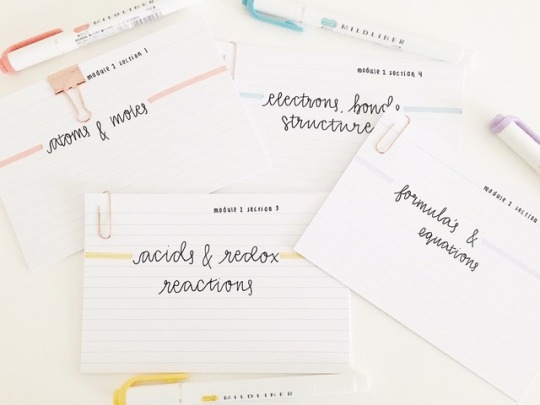 MILDLINER
MILDLINER
module 2 section 1
atoms & moles
module 2 section 4
electrons, bonds
structure
module 2 section
formula's &
equations
module 2 section 3
acids & redox
reactions
MILDLINER